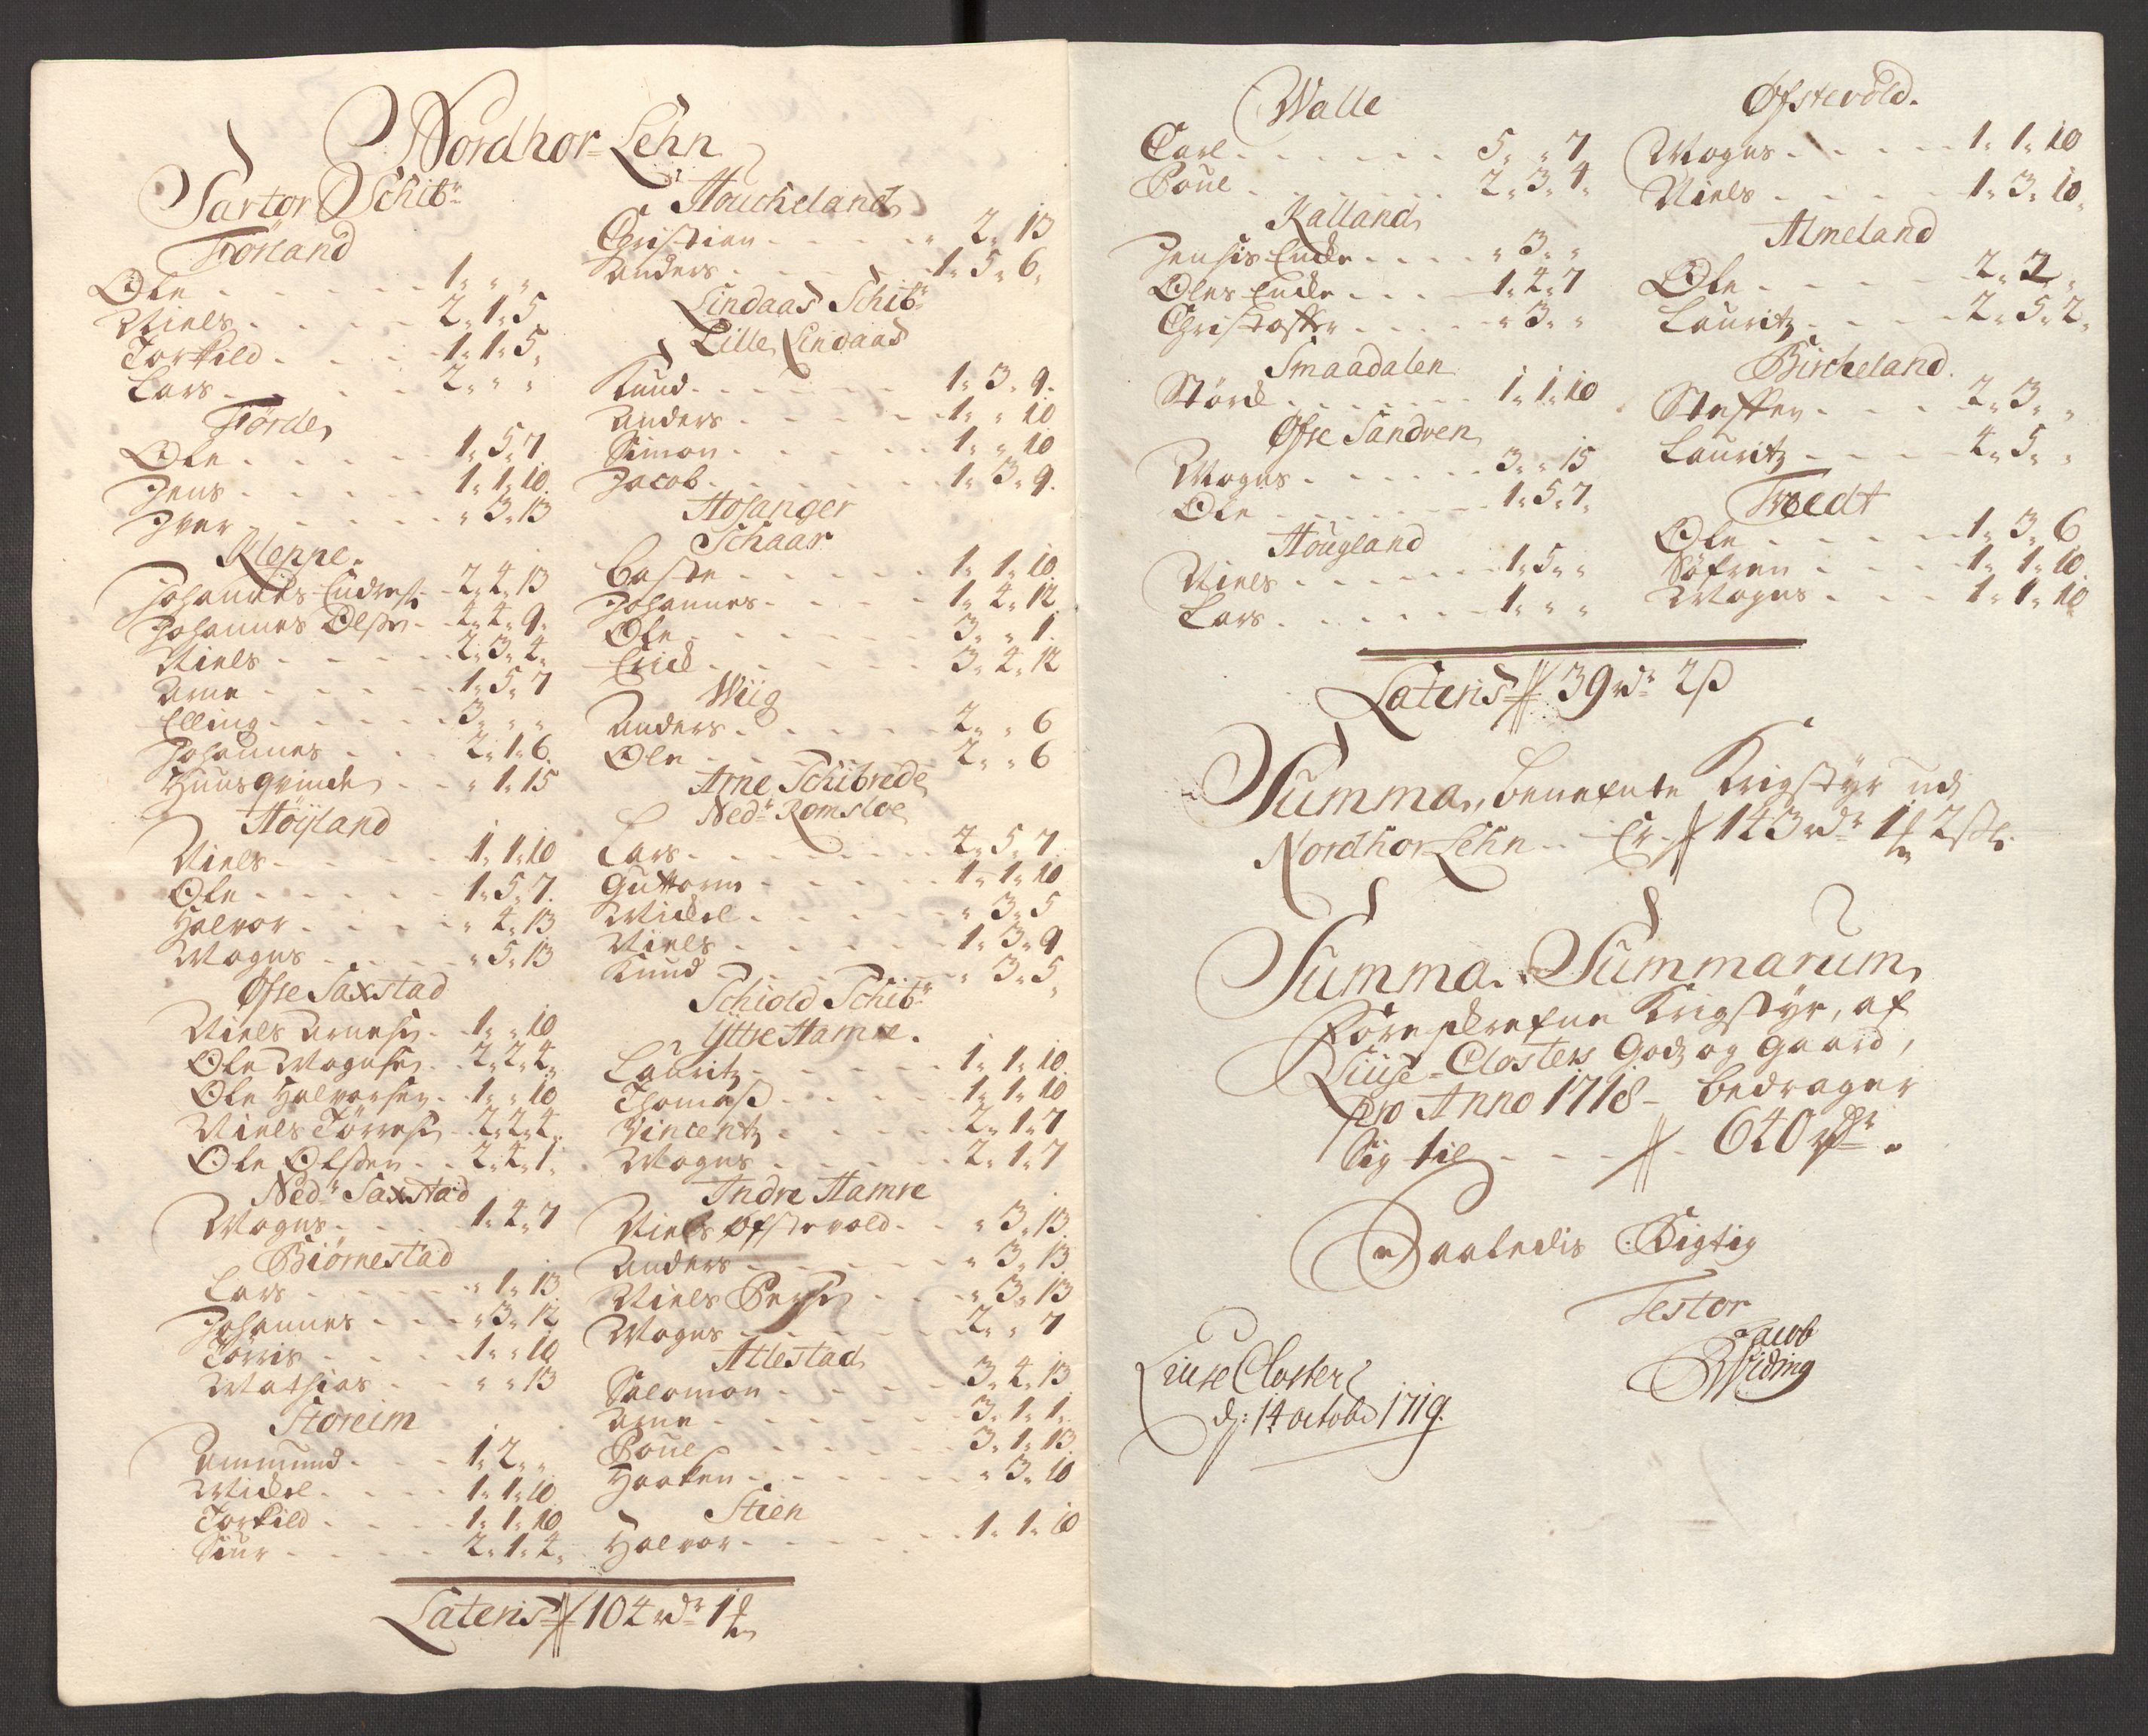 Nordhor-Lehn
Sartor Schibr
Førland
Ole - - - - 1 " "
Niels - - - - 2 " 1 " 5
Torkild - - - - 1 " 1 " 5
Lars - - - - 2 " "
Førde
Ole - - - - 1 " 5 " 7
Jens - - - - 1 " 1 " 10
Iver - - - - " 3 " 13
Kleppe
Johannes Endres: - 2 " 4 " 13
Johannes Olsen - 4 " 4 " 9
Niels - - - - 2 " 3 " 4
Arne - - - - 1 " 5 " 7
Elling - - - - 3 " "
Johannes - - - 2 " 1 " 6
Huusqvinde - - " 1 " 15
Høyland
Niels - - - - 1 " 1 " 10
Ole - - - - 1 " 5 " 7
Halvor - - - - " 4 " 13
Mogns - - - - " 5 " 13
Øfre Saxstad
Niels Arnesen - 1 " " 10
Ole Mognsen - 2 " 2 " 4
Ole Halvorsen - 1 " " 10
Niels Tørresen - 2 " 2 " 4
Ole Olsen - - 2 " 4 " 1
Nedr Saxstad
Mogns - - - - 1 " 4 " 7
Biørnestad
Lars - - - - " 1 " 13
Johannes - - - " 3 " 12
Tørris - - - - 1 " " 10
Mathias - - - " " 13
Storeim
Ammund - - - 1 " 2 "
Mickel - - - - 1 " 1 " 10
Torkild - - - - 1 " 1 " 10
Siur - - - - 2 " 1 " 4
Houcheland
Christian - - - - " 2 " 13
Anders - - - - 1 " 5 " 6
Lindaas Schibr
Lille Lindaas
Knud - - - - 1 " 3 " 9
Anders - - - - 1 " " 10
Simon - - - - 1 " " 10
Jacob - - - - 1 " 3 " 9
Hosanger
Schaar
Baste - - - - 1 " 1 " 10
Johannes - - - - 1 " 4 " 12
Ole - - - - 3 " " 1
Erick - - - - 3 " 4 " 12
Wiig
Anders - - - - 2 " " 6
Ole - - - - 2 " " 6
Arne Schibrede
Nedr Romsloe
Lars - - - - 2 " 5 " 7
Guttorm - - - - 1 " 1 " 10
Mickel - - - - " 3 " 5
Niels - - - - 1 " 3 " 9
Knud - - - - " 3 " 5
Schiold Schibr
Yttre Hamre
Lauritz - - - - 1 " 1 " 10
Thomas - - - - 1 " 1 " 10
Vincentz - - - - 2 " 1 " 7
Mogns - - - - 2 " 1 " 7
Indre Hamre
Niels Øfstevold - - " 3 " 13
Anders - - - - " 3 " 13
Niels Persen - - - " 3 " 13
Mogns - - - - 2 " " 7
Allestad
Salomon - - - - 3 " 4 " 13
Arne - - - - 3 " 1 " 1
Poul - - - - 3 " 1 " 13
Haaken - - - - " 3 " 10
Stien
Halvor - - - - 1 " 1 " 10
Lateris 104 rdr 1
Walle
Carl - - - - 5 " " 7
Poul - - - - 2 " 3 " 4
Kalland
Jensis Encke - - - - " 3 "
Oles Encke - - - 1 " 4 " 7
Christoffer - - - - " 3 "
Smaadalen
Størck - - - - 1 " 1 " 10
Øfre Sandven
Mogns - - - - 3 " " 15
Ole - - - - 1 " 5 " 7
Hougland
Niels - - - - 1 " 5 "
Lars - - - - 1 " "
Øfstevold
Mogns - - - - 1 " 1 " 10
Niels - - - - 1 " 3 " 10
Almeland
Ole - - - - 2 " 2 "
Lauritz - - - - 2 " 5 " 2
Bircheland
Steffen - - - - 2 " 3 "
Lauritz - - - - 4 " 5 "
Troedt
Ole - - - - 1 " 3 " 6
Søfren - - - - 1 " 1 " 10
Mogns - - - - 1 " 1 " 10
Lateris 39 rdr 2 s
Summa, benefnte Krigstyr ud
Nordhor-Lehn - Er 143 rdr 1 2 s
Summa Summarum
Foreskrefne Krigstyr, af
Liuse-Closters Godz og Gaard,
pro Anno 1718 - bedrager
Sig til - - - 640 rdr
Saaledis Rigtig
Testor
Jacob
Widing
Liuse Closter
d: 14 octobr 1719.